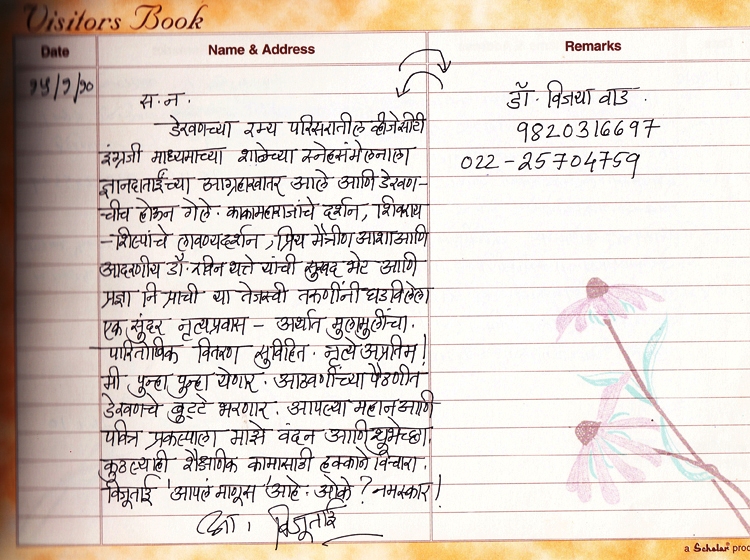 Visitors Book
Date
Name & Address
Remarks
स. न.
डेरवणच्या रम्य परिसरातील व्हीजेसीटी
इंग्रजी माध्यमाच्या शाळेच्या स्नेहसंमेलनाला
ज्ञानदाताईंच्या आग्रहाखातर आले आणि डेरवण-
चीच होऊन गेले. काकामहाराजांचे दर्शन, शिवराय
-शिल्पांचे लावण्यदर्शन, प्रिय मैत्रीण आशा आणि
आदरणीय डॉ. रविन थत्ते यांची सुखद भेट आणि
प्रज्ञा नि प्राची या तेजस्वी तरुणींनी घडविलेला
एक सुंदर नृत्यप्रवास - अर्थात मुलामुलींचा.
पारितोषिक वितरण सुविहित. नृत्ये अप्रतिम!
मी पुन्हा पुन्हा येणार. आठवणींच्या पैठणीत
डेरवणचे बुट्टे भरणार. आपल्या महान आणि
पवित्र प्रकल्पाला माझे वंदन आणि शुभेच्छा.
कुठल्याही शैक्षणिक कामासाठी हक्काने विचारा.
विजूताई 'आपलं माणूस' आहे. ओके? नमस्कार!
विजूताई
डॉ. विजया वाड.
9820316697
022-25704759
a Scholar proc